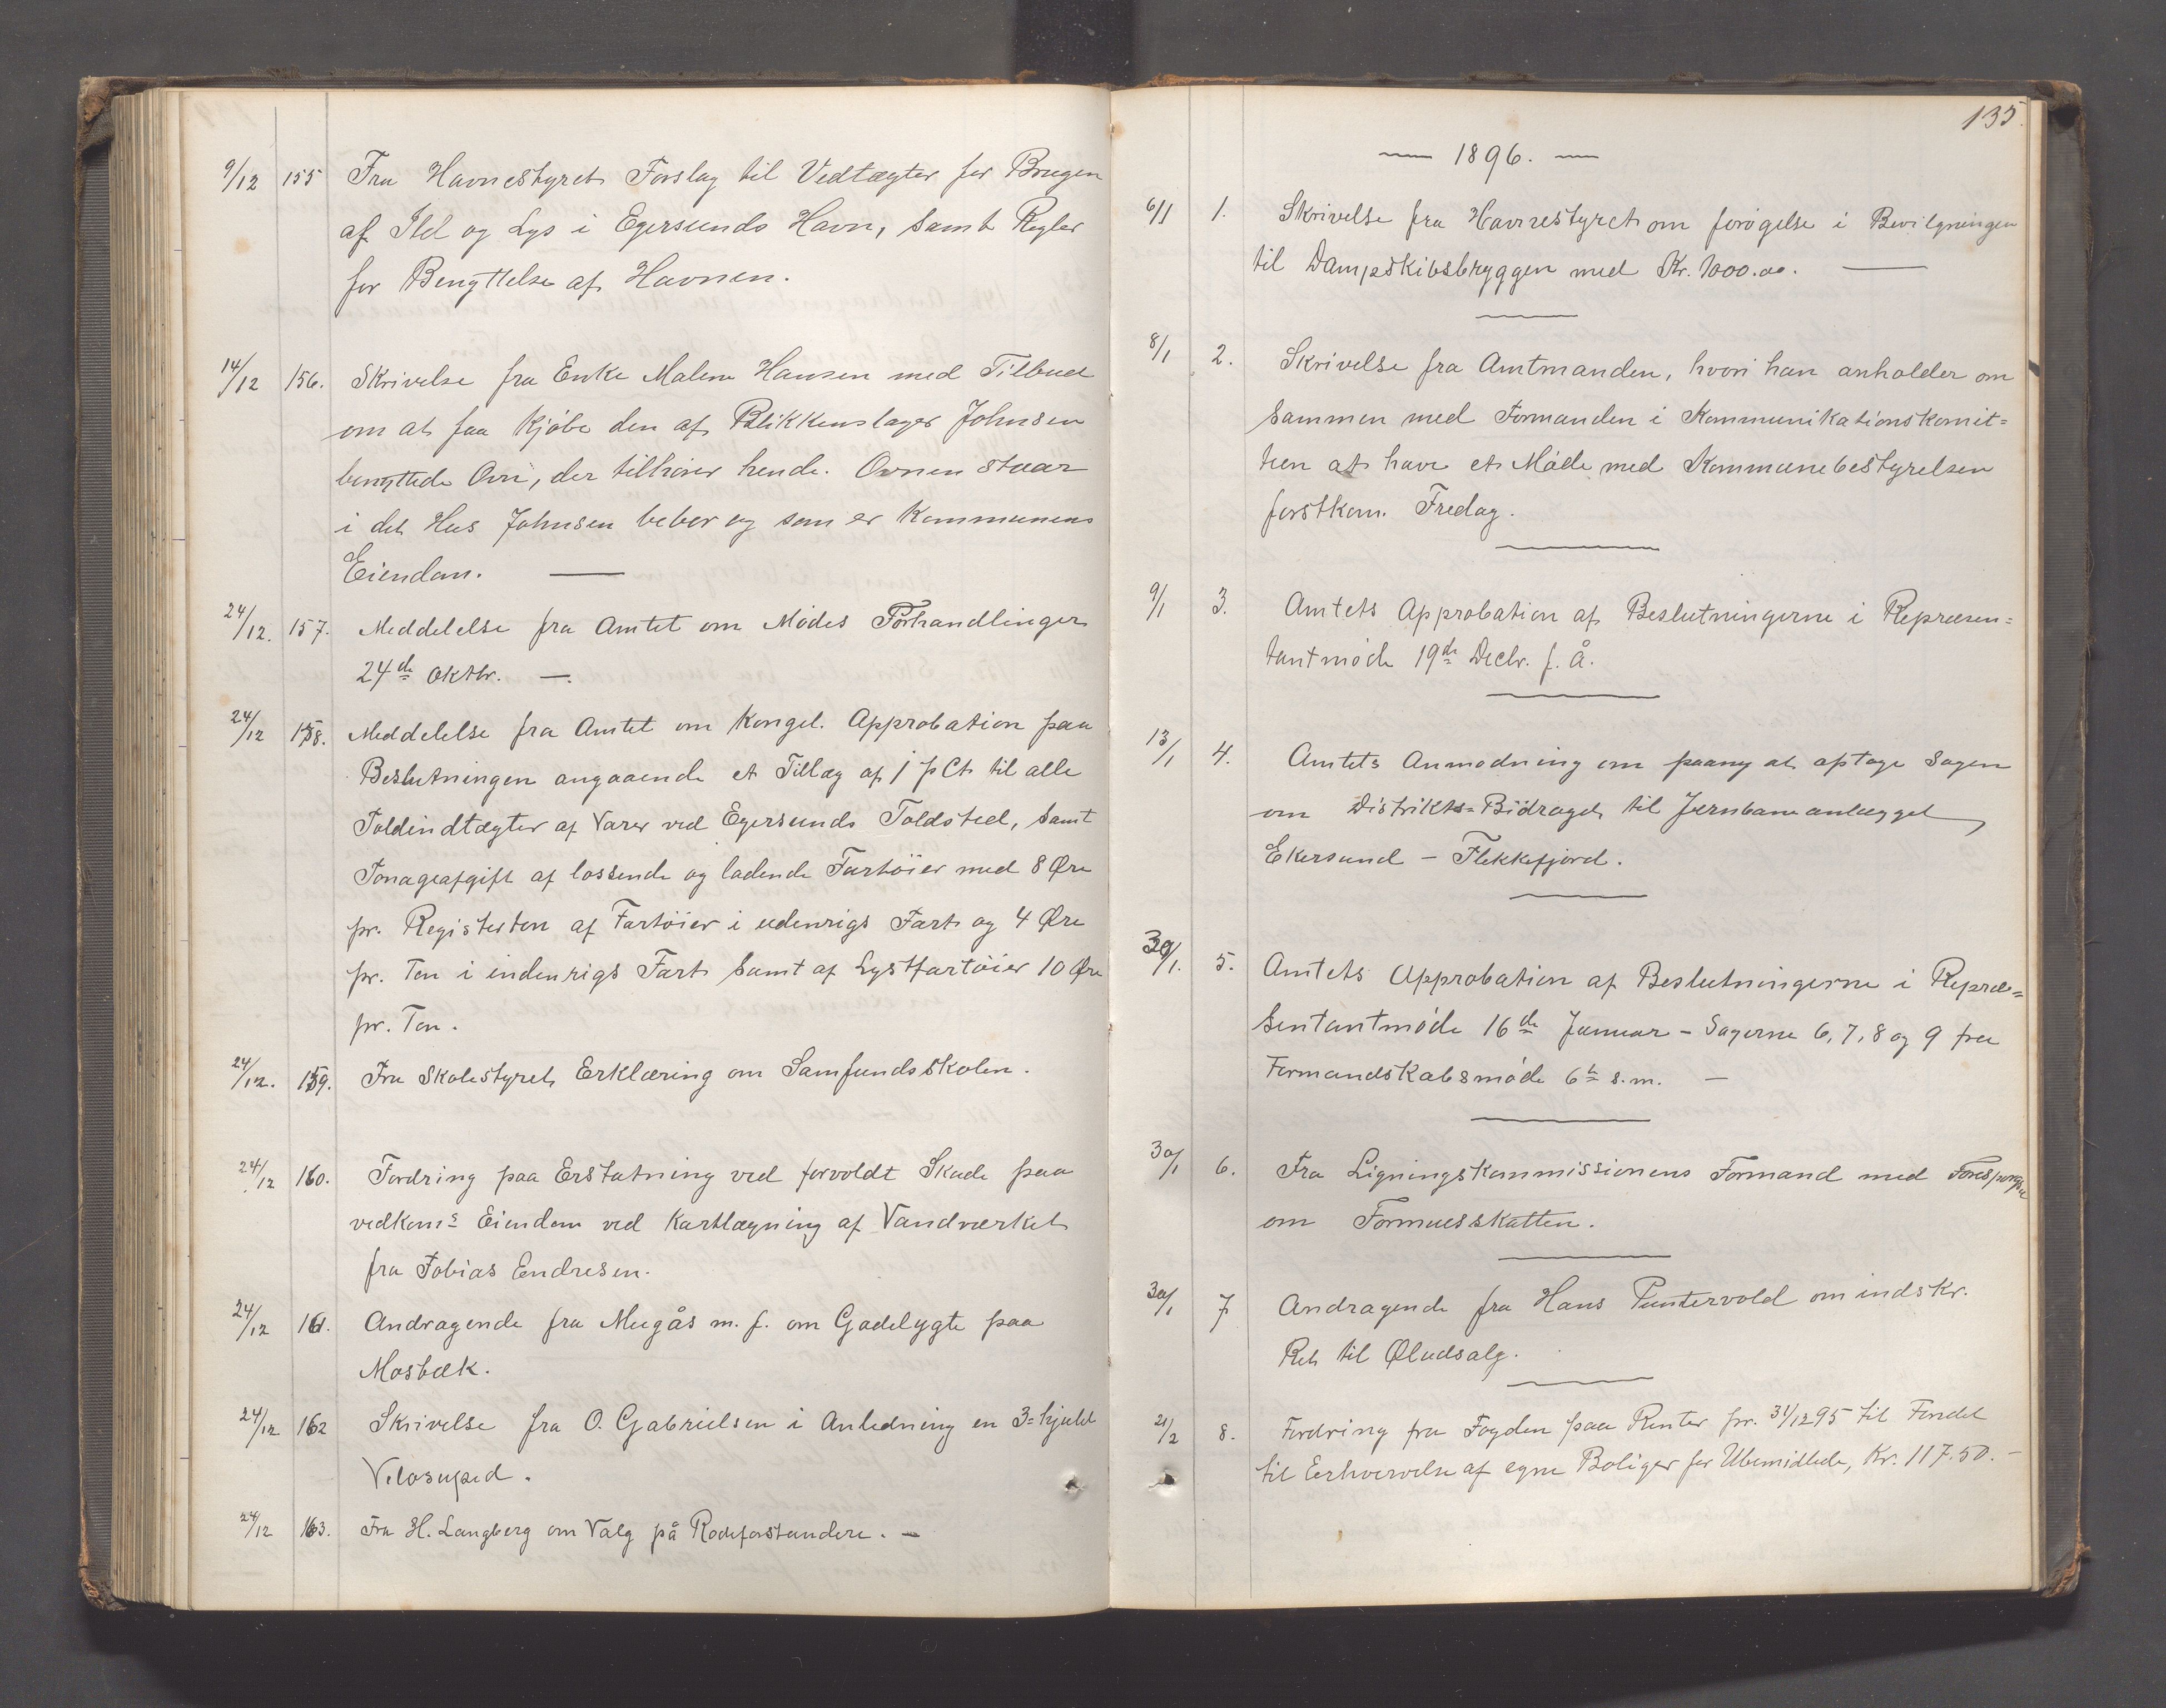 9/12 155 Fra Havnestyret Forslag til Vedtægter for Brugen
af Ild og Lys i Egersunds Havn, samt Regler
for Benyttelse af Havnen.
14/12 156. Skrivelse fra Enke Malene Hansen med Tilbud
om at faa Kjøbe den af Blikkenslager Johnsen
benyttede Ovn, der tilhører hende. Ovnen staar
i det Hus Johnsen bebor og som er Kommunens
Eiendom. —
24/12. 157. Meddelelse fra Amtet om Mødes Forhandlinger
24de Oktbr. —.
24/12 158. Meddelelse fra Amtet om Kongel. Approbation paa
Beslutningen angaaende et Tillæg af 1 pCt til alle
Toldindtægter af Varer ved Egersunds Toldsted, samt
Tonageafgift af lossende og ladende Fartøier med 8 Øre
pr. Registerton af Fartøier i udenrigs Fart og 4 Øre
pr. Ton i indenrigs Fart samt af Lystfartøier 10 Øre
pr. Ton.
24/12. 159. Fra Skolestyret Erklæring om Samfundsskolen.
24/12 160. Fordring paa Erstatning ved forvoldt Skade paa
vedkoms Eiendom ved Kartlægning af Vandværket
fra Tobias Endresen.
24/12 161. Andragende fra Mugås m. f. om Gadelygte paa
Mosbæk.
24/12 162 Skrivelse fra O. Gabrielsen i Anledning en 3=hjuld
Velosuped.
24/12 163. Fra H. Langberg om Valg på Rodeforstandere. —
135.
— 1896. —
6/1 1. Skrivelse fra Havnestyret om forøgelse i Bevilgningen
til Dampskibsbryggen med Kr. 1000.00. —
8/1 2. Skrivelse fra Amtmanden, hvori han anholder om
sammen med Formanden i Kommunikationskomit=
teen at have et Møde med Kommunebestyrelsen
førstkom. Fredag.
9/1 3. Amtets Approbation af Beslutningerne i Repræsen=
tantmøde 19de Decbr. f. Å.
13/1 4. Amtets Anmodning om paany at optage Sagen
om Distrikts=Bidraget til Jernbaneanlægget
Ekersund – Flekkefjord.
30/1. 5. Amtets Approbation af Beslutningerne i Repræ=
sentantmøde 16de Januar – Sagerne 6, 7, 8 og 9 fra
Formandskabsmøde 6te s.m. —
30/1 6. Fra Ligningskommissionens Formand med Forespørgsel
om Formuesskatten.
30/1 7 Andragende fra Hans Puntervold om indskr.
Ret til Øludsalg.
21/2 8. Fordring fra Fogden paa Renter pr. 31/12 95 til Fondet
til Erhvervelse af egne Boliger for Ubemidlede, Kr. 117.50. –